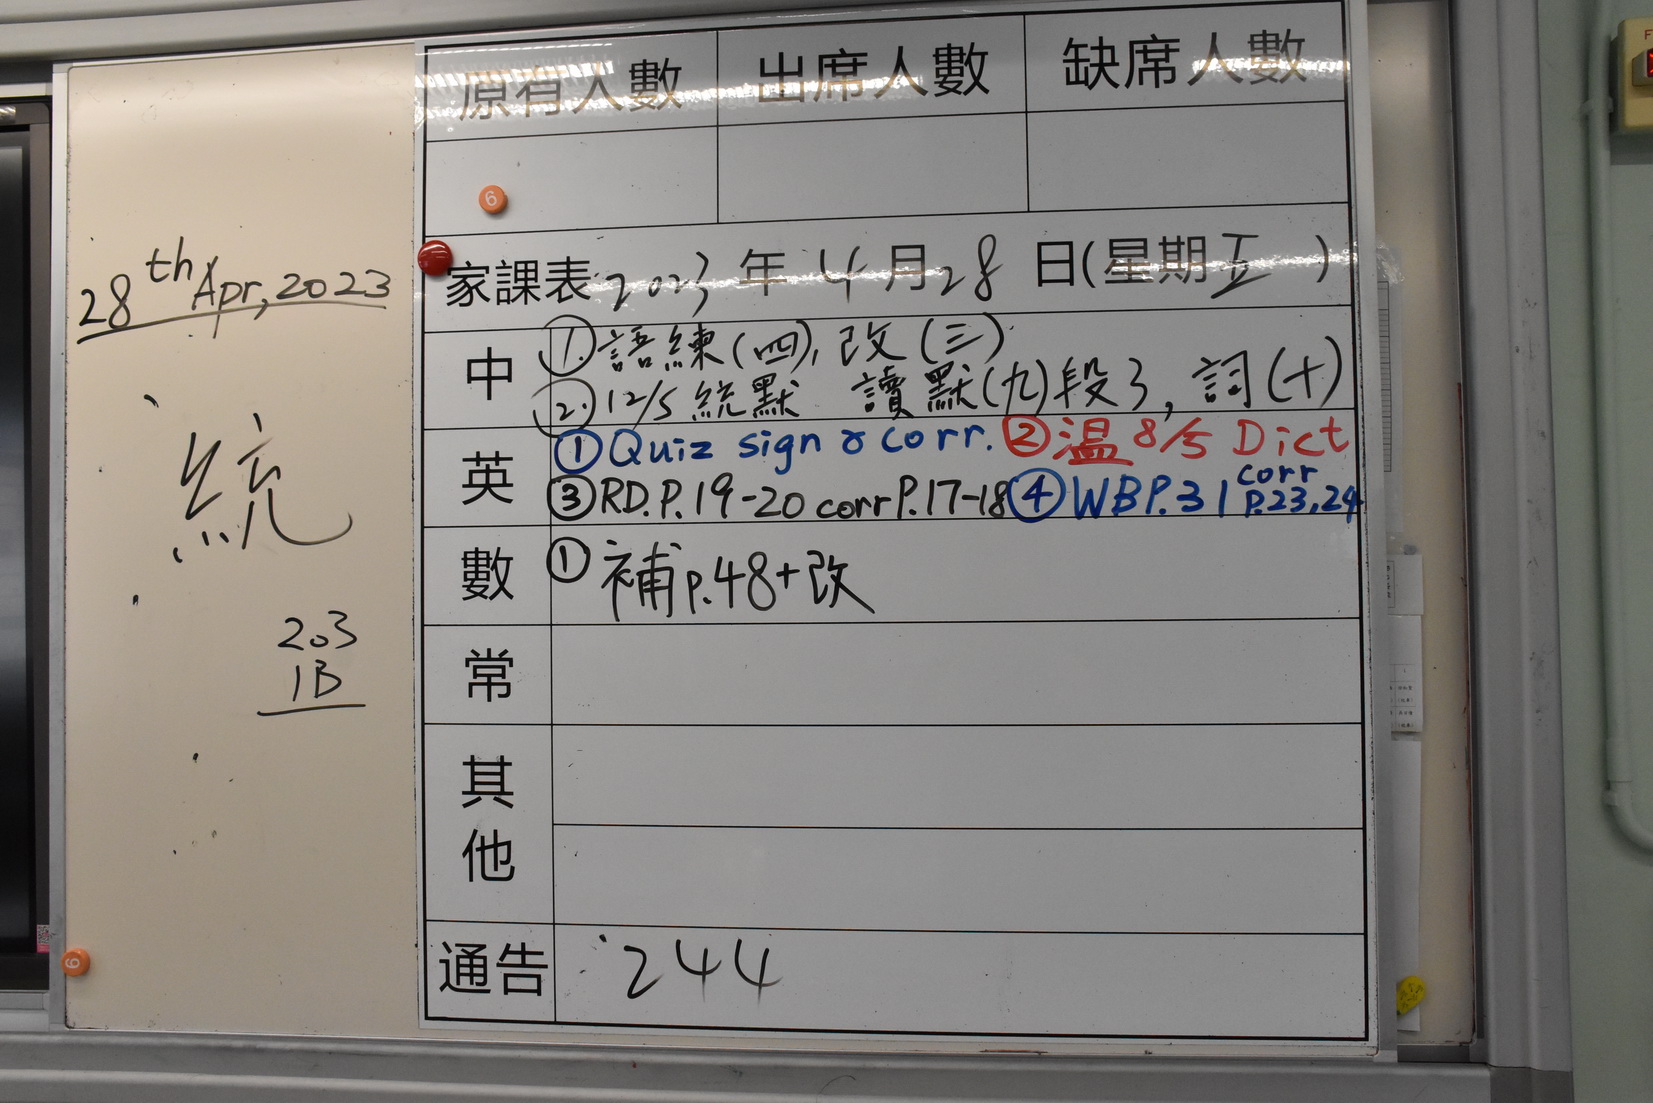 28th Apr, 2023
統
203
1B
原有人數 出席人數 缺席人數
6
家課表 2023 年 4 月 28 日(星期五)
中 ①語練(四), 改(三)
②12/5 統默 讀默(九)段3, 詞(十)
英 ①Quiz sign & corr. ②温 8/5 Dict
③RD.P.19-20 corr P.17-18 ④WBP.31 corr P.23,24
數 ①補p.48+改
常
其他
通告 244
6